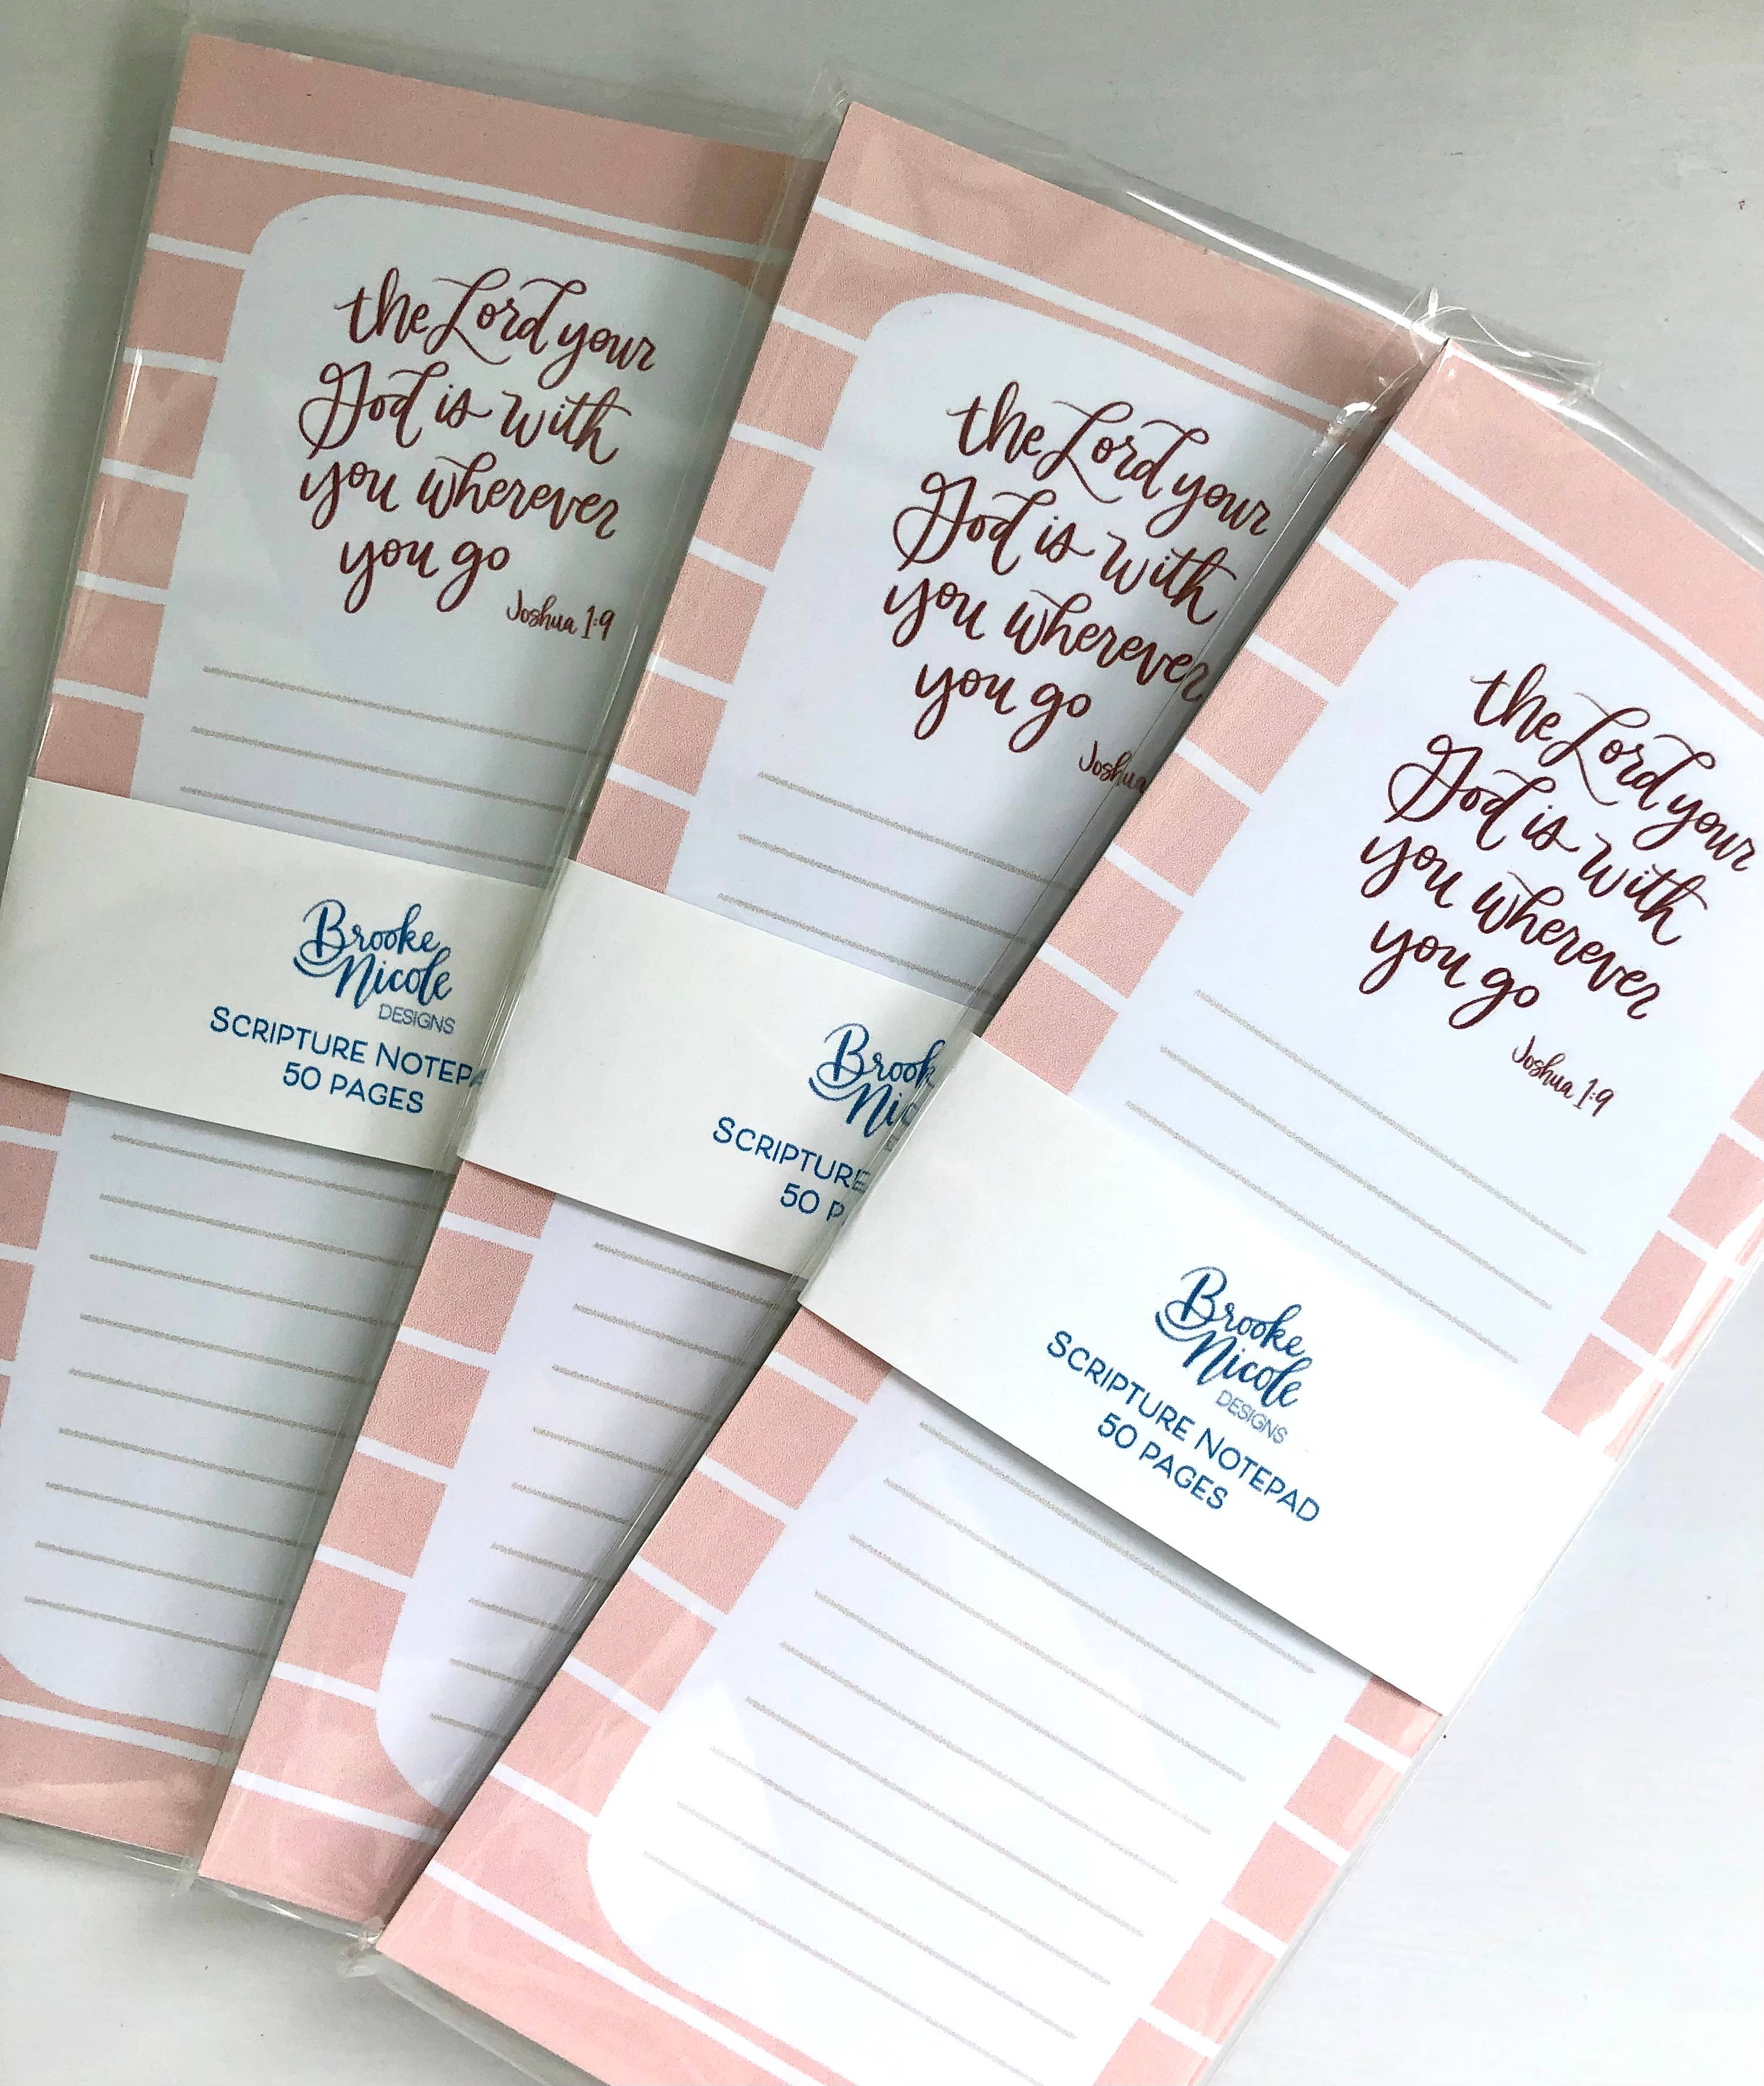 the Lord your
God is with
you wherever
you go
Joshua 1:9
Brooke
Nicole
DESIGNS
SCRIPTURE
50 PAGES
the Lord your
God is with
you wherever
you go
Joshua
SCRIPTURE
50
the Lord your
God is with
you wherever
you go
Joshua 1:9
Brooke
Nicole
DESIGNS
SCRIPTURE NOTEPAD
50 PAGES